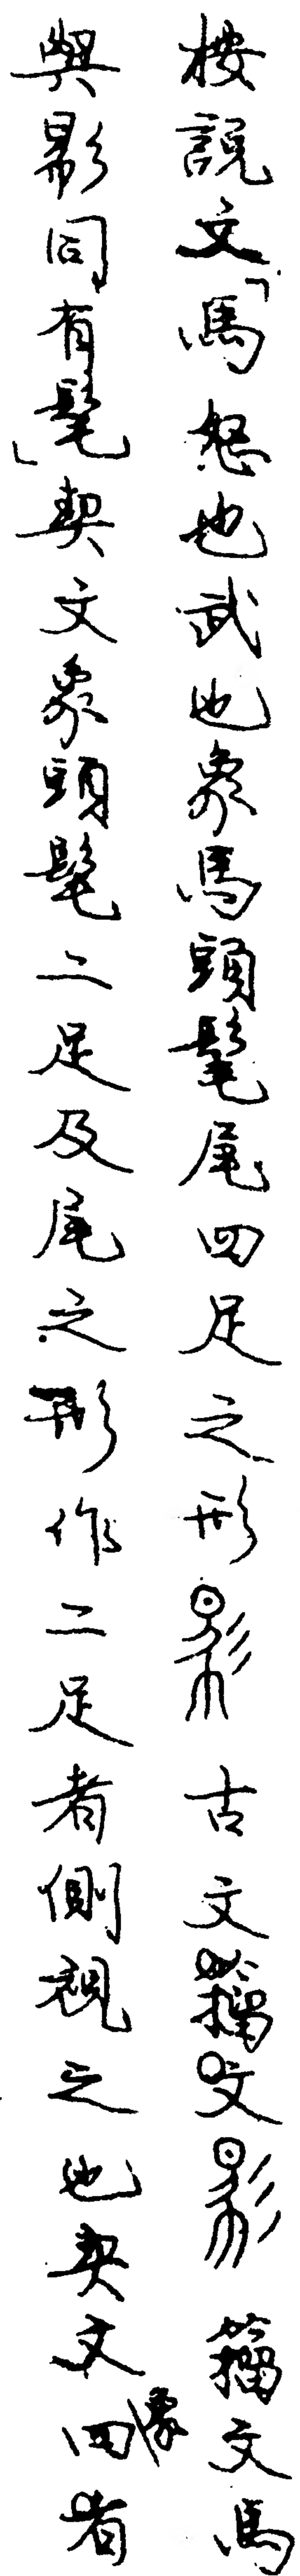 按說文「馬怒也武也象馬頭髦尾四足之形𢒠古文籒文𢒠籒文馬
與𢒠同有髦」契文象頭髦二足及尾之形作二足者側視之也契文象四者